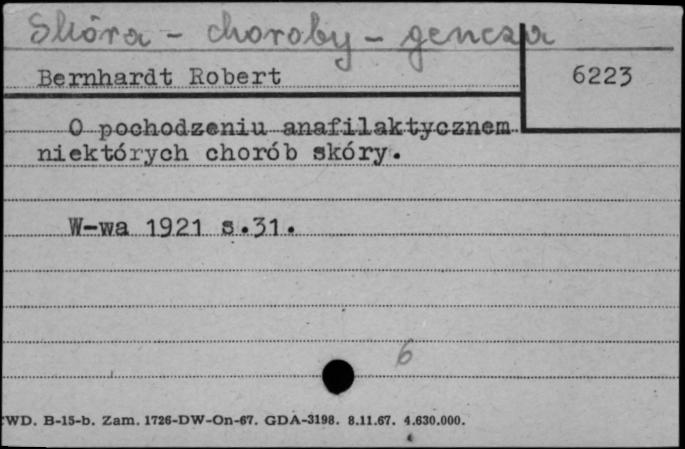 Skóra - choroby - geneza
Bernhardt Robert 6223
O pochodzeniu anafilaktycznem
niektórych chorób skóry.
W-wa 1921 s.31.
6
WD. B-15-b. Zam. 1726-DW-On-67. GDA-3198. 8.11.67. 4.630.000.